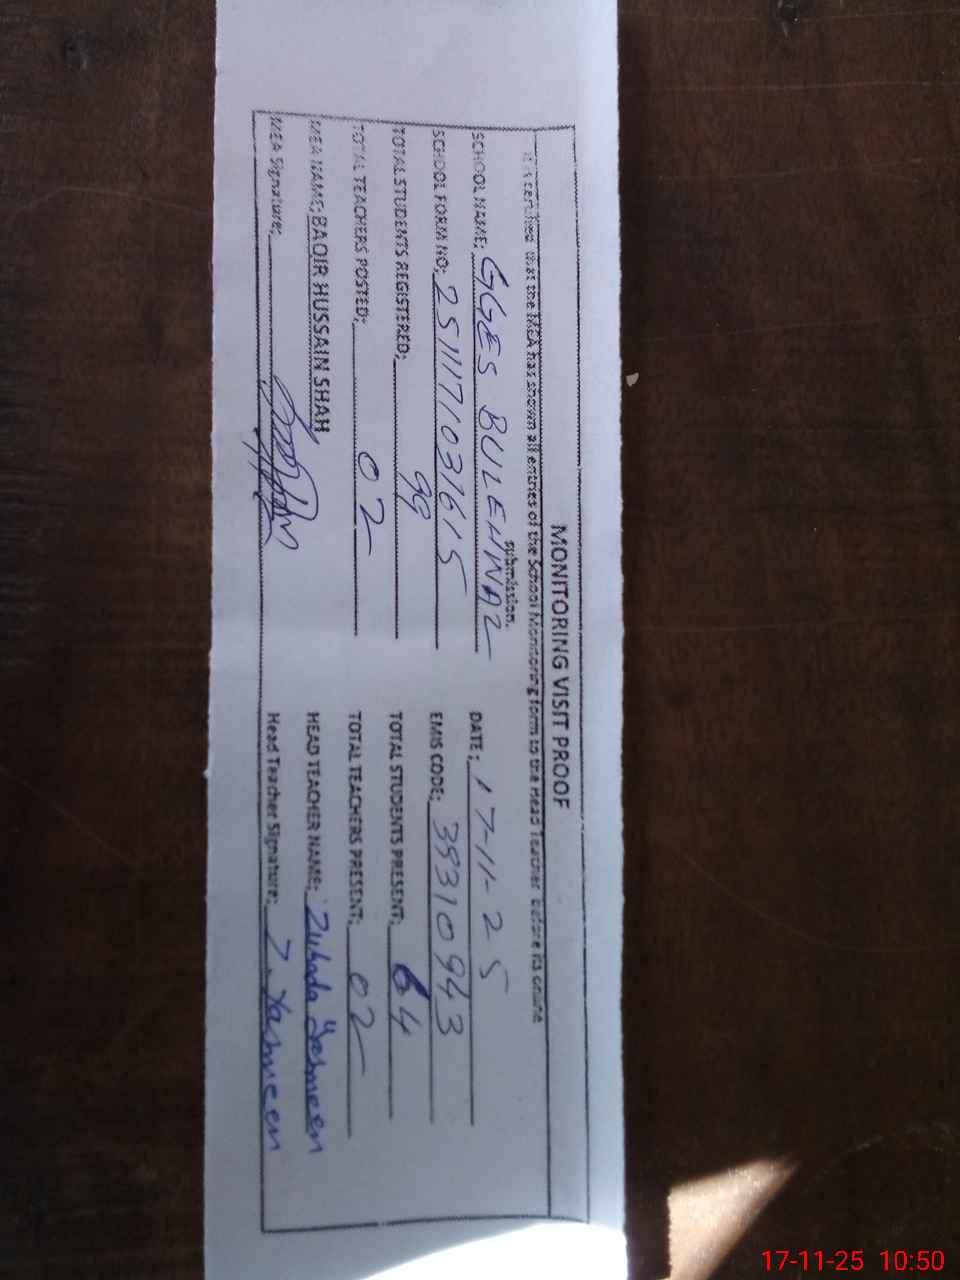 MONITORING VISIT PROOF
It is certified that the MEA has shown all entries of the School Monitoring form to the Head Teacher before its online
submission.
SCHOOL NAME: GGES BULEHNAZ DATE: 17-11-25
SCHOOL FORM NO: 2511171031615 EMIS CODE: 39310943
TOTAL STUDENTS REGISTERED: 99 TOTAL STUDENTS PRESENT: 64
TOTAL TEACHERS POSTED: 02 TOTAL TEACHERS PRESENT: 02
MEA NAME: BAQIR HUSSAIN SHAH HEAD TEACHER NAME: Zubada Yasmeen
MEA Signature: Head Teacher Signature: Z. Yasmeen
17-11-25 10:50